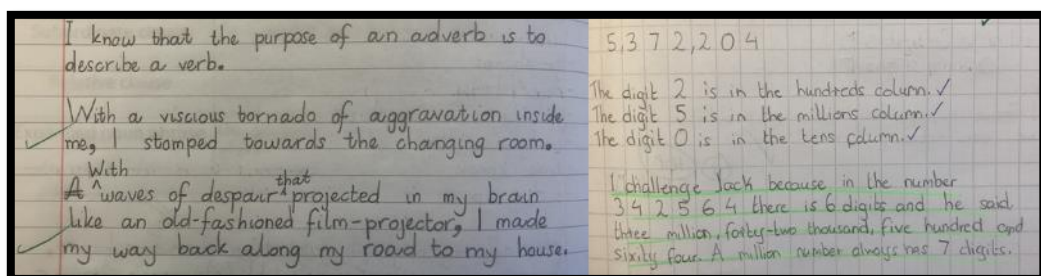 I know that the purpose of an adverb is to
describe a verb.
With a viscious tornado of aggravation inside
me, I stomped towards the changing room.
With
A waves of despair that projected in my brain
like an old-fashioned film-projector, I made
my way back along my road to my house.
5,372,204
The digit 2 is in the hundreds column.
The digit 5 is in the millions column.
The digit 0 is in the tens column.
I challenge Jack because in the number
342564 there is 6 digits and he said
three million, forty-two thousand, five hundred and
sixty four. A million number always has 7 digits.